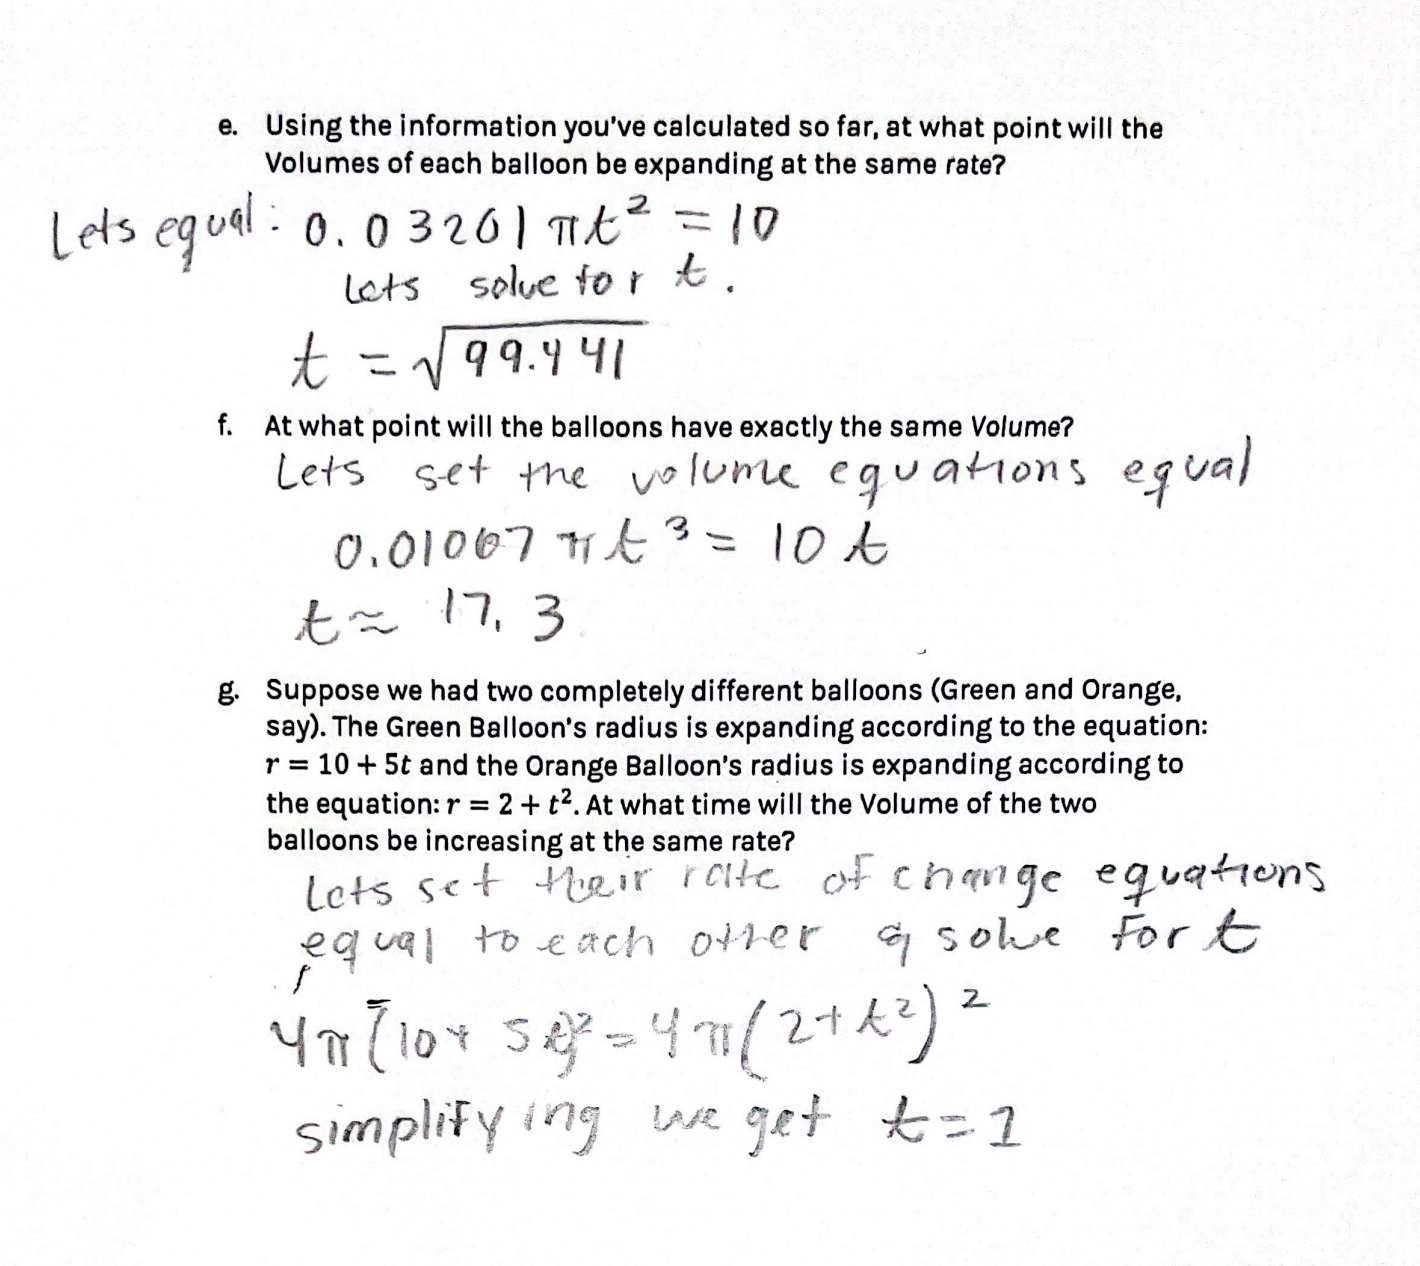 e. Using the information you've calculated so far, at what point will the
Volumes of each balloon be expanding at the same rate?
Lets equal: 0.03201 πt² = 10
Lets solve for t.
t = √99.441
f. At what point will the balloons have exactly the same Volume?
Lets set the volume equations equal
0.01067 πt³ = 10t
t ≈ 17.3
g. Suppose we had two completely different balloons (Green and Orange,
say). The Green Balloon's radius is expanding according to the equation:
r = 10 + 5t and the Orange Balloon's radius is expanding according to
the equation: r = 2 + t². At what time will the Volume of the two
balloons be increasing at the same rate?
Lets set their rate of change equations
equal to each other & solve for t
4π(10+5t)² = 4π(2+t²)²
simplifying we get t=1